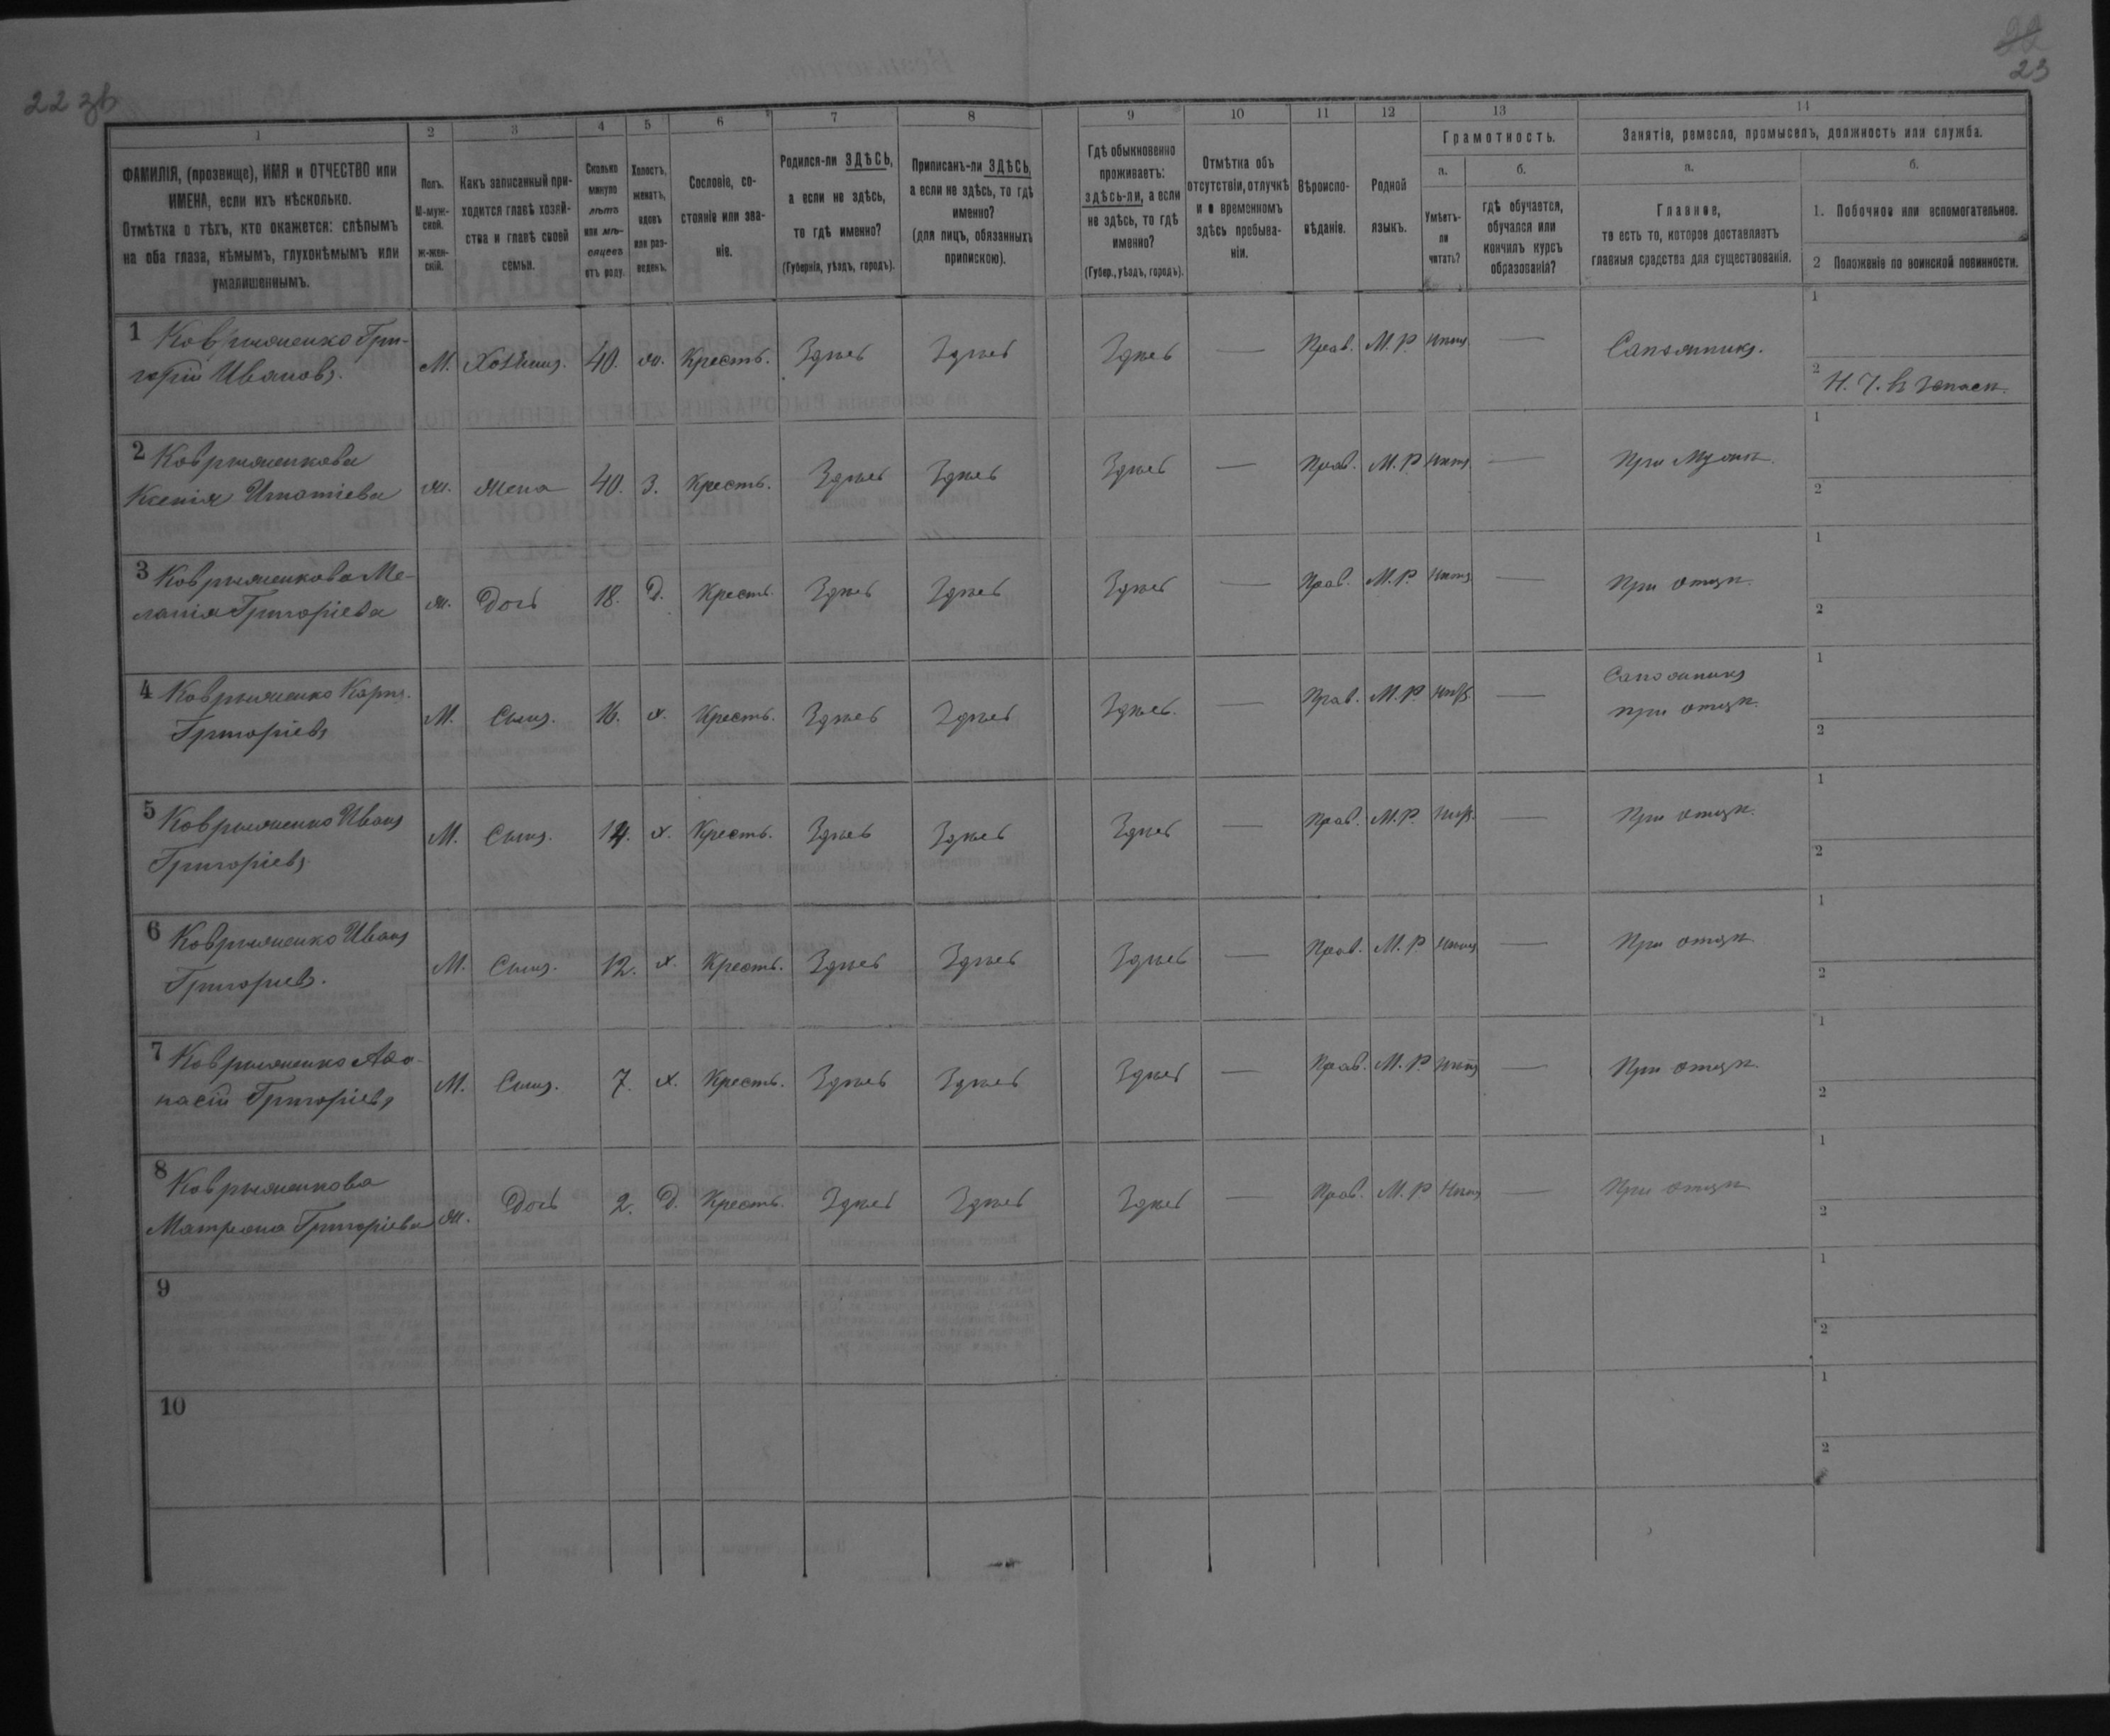 22 зв
22
23
1 2 3 4 5 6 7 8 9 10 11 12 13 14
ФАМИЛІЯ, (прозвище), ИМЯ и ОТЧЕСТВО или
ИМЕНА, если ихъ нѣсколько.
Отмѣтка о тѣхъ, кто окажется: слѣпымъ
на оба глаза, нѣмымъ, глухонѣмымъ или
умалишеннымъ.
Полъ.
М-муж-
ской.
Ж-жен-
скій.
Какъ записанный при-
ходится главѣ хозяй-
ства и главѣ своей
семьи.
Сколько
минуло
лѣтъ
или мѣ-
сяцевъ
отъ роду.
Холостъ,
женатъ,
вдовъ
или раз-
веденъ.
Сословіе, со-
стояніе или зва-
ніе.
Родился-ли ЗДѢСЬ,
а если не здѣсь,
то гдѣ именно?
(Губернія, уѣздъ, городъ).
Приписанъ-ли ЗДѢСЬ,
а если не здѣсь, то гдѣ
именно?
(для лицъ, обязанныхъ
припискою).
Гдѣ обыкновенно
проживаетъ:
здѣсь-ли, а если
не здѣсь, то гдѣ
именно?
(Губер., уѣздъ, городъ).
Отмѣтка объ
отсутствіи, отлучкѣ
и о временномъ
здѣсь пребыва-
ніи.
Вѣроиспо-
вѣданіе.
Родной
языкъ.
Грамотность.
а.
Умѣетъ-
ли
читать?
б.
гдѣ обучается,
обучался или
кончилъ курсъ
образованія?
Занятіе, ремесло, промыселъ, должность или служба.
а.
Главное,
то есть то, которое доставляетъ
главныя средства для существованія.
б.
1. Побочное или вспомогательное.
2 Положеніе по воинской повинности.
1 Гри-
горій Ивановъ. М. Хозяинъ. 40. ж. Крестъ. Здѣсь Здѣсь Здѣсь — Прав. М. Р. — Сапожникъ. 1
2
2
Ксенія Игнатіева ж. Жена 40. З. Крестъ. Здѣсь Здѣсь Здѣсь — Прав. М. Р. нѣтъ — При мужѣ. 1
2
3 Ме-
ланія Григоріева ж. Дочь 18. Д. Крестъ. Здѣсь Здѣсь Здѣсь — Прав. М. Р. нѣтъ — При отцѣ. 1
2
4 Карпъ.
Григоріевъ М. Сынъ. 16. х. Крестъ. Здѣсь Здѣсь Здѣсь. — Прав. М. Р. нѣтъ — Сапожникъ
при отцѣ. 1
2
5 Иванъ
Григоріевъ. М. Сынъ. 14. х. Крестъ. Здѣсь Здѣсь Здѣсь — Прав. М. Р. нѣтъ. — При отцѣ. 1
2
6 Иванъ
Григориев. М. Сынъ. 12. х. Крестъ. Здѣсь Здѣсь Здѣсь — Прав. М. Р. нѣтъ — При отцѣ 1
2
7 Афа-
насій Григоріевъ М. Сынъ. 7. х. Крестъ. Здѣсь Здѣсь Здѣсь — Прав. М. Р. нѣтъ — При отцѣ. 1
2
8
Матрона Григоріева ж. Дочь 2. Д. Крестъ. Здѣсь Здѣсь Здѣсь — Прав. М. Р. нѣтъ — При отцѣ 1
2
9 1
2
10 1
2